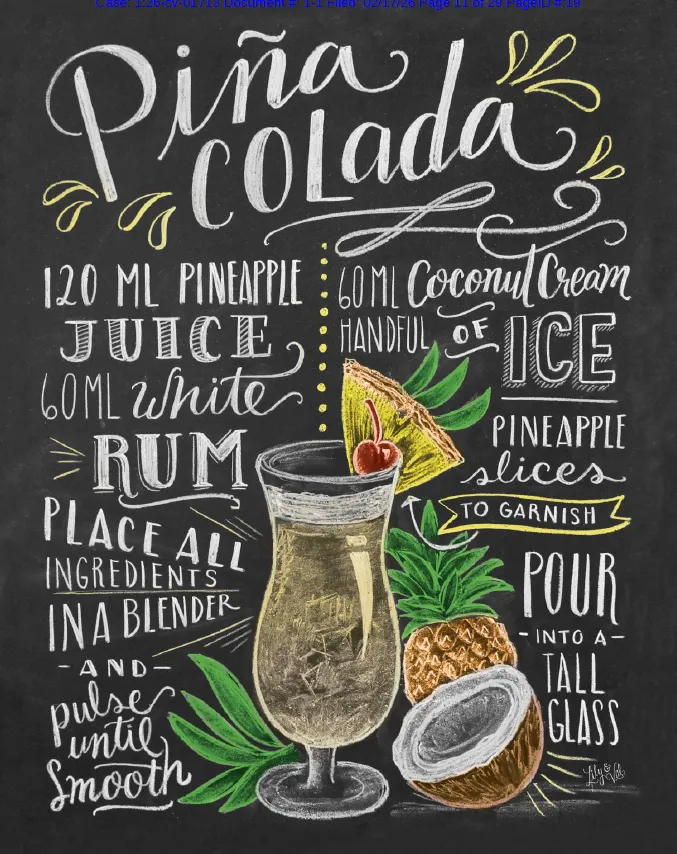 Case: 1:26-cv-01713 Document #: 1-1 Filed: 02/17/26 Page 11 of 29 PageID #:19
Piña
COLada
120 ML PINEAPPLE
JUICE
60 ML White
RUM
PLACE ALL
INGREDIENTS
IN A BLENDER
-AND-
pulse
until
Smooth
60 ML Coconut Cream
HANDFUL OF ICE
PINEAPPLE
slices
TO GARNISH
POUR
-INTO A-
TALL
GLASS
Lily & Val